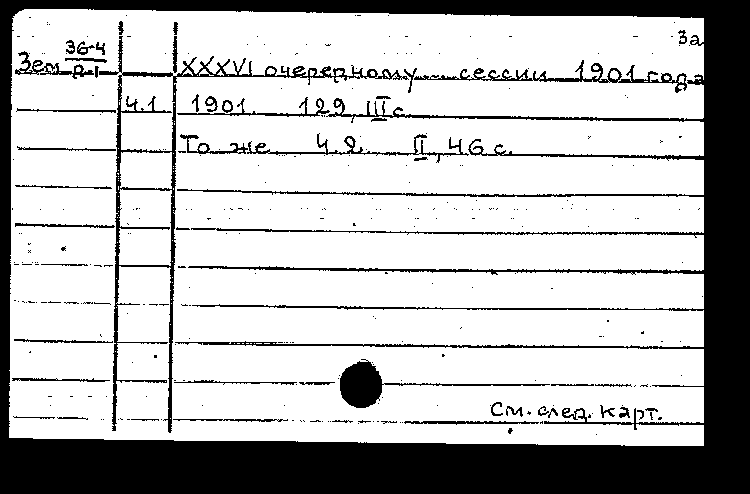 3а
Зем 36-4 XXXVI очередному сессии 1901 года
Р-1
ч.1 1901. 129, III с.
То же ч.2. II, 46 с.
См. след. карт.